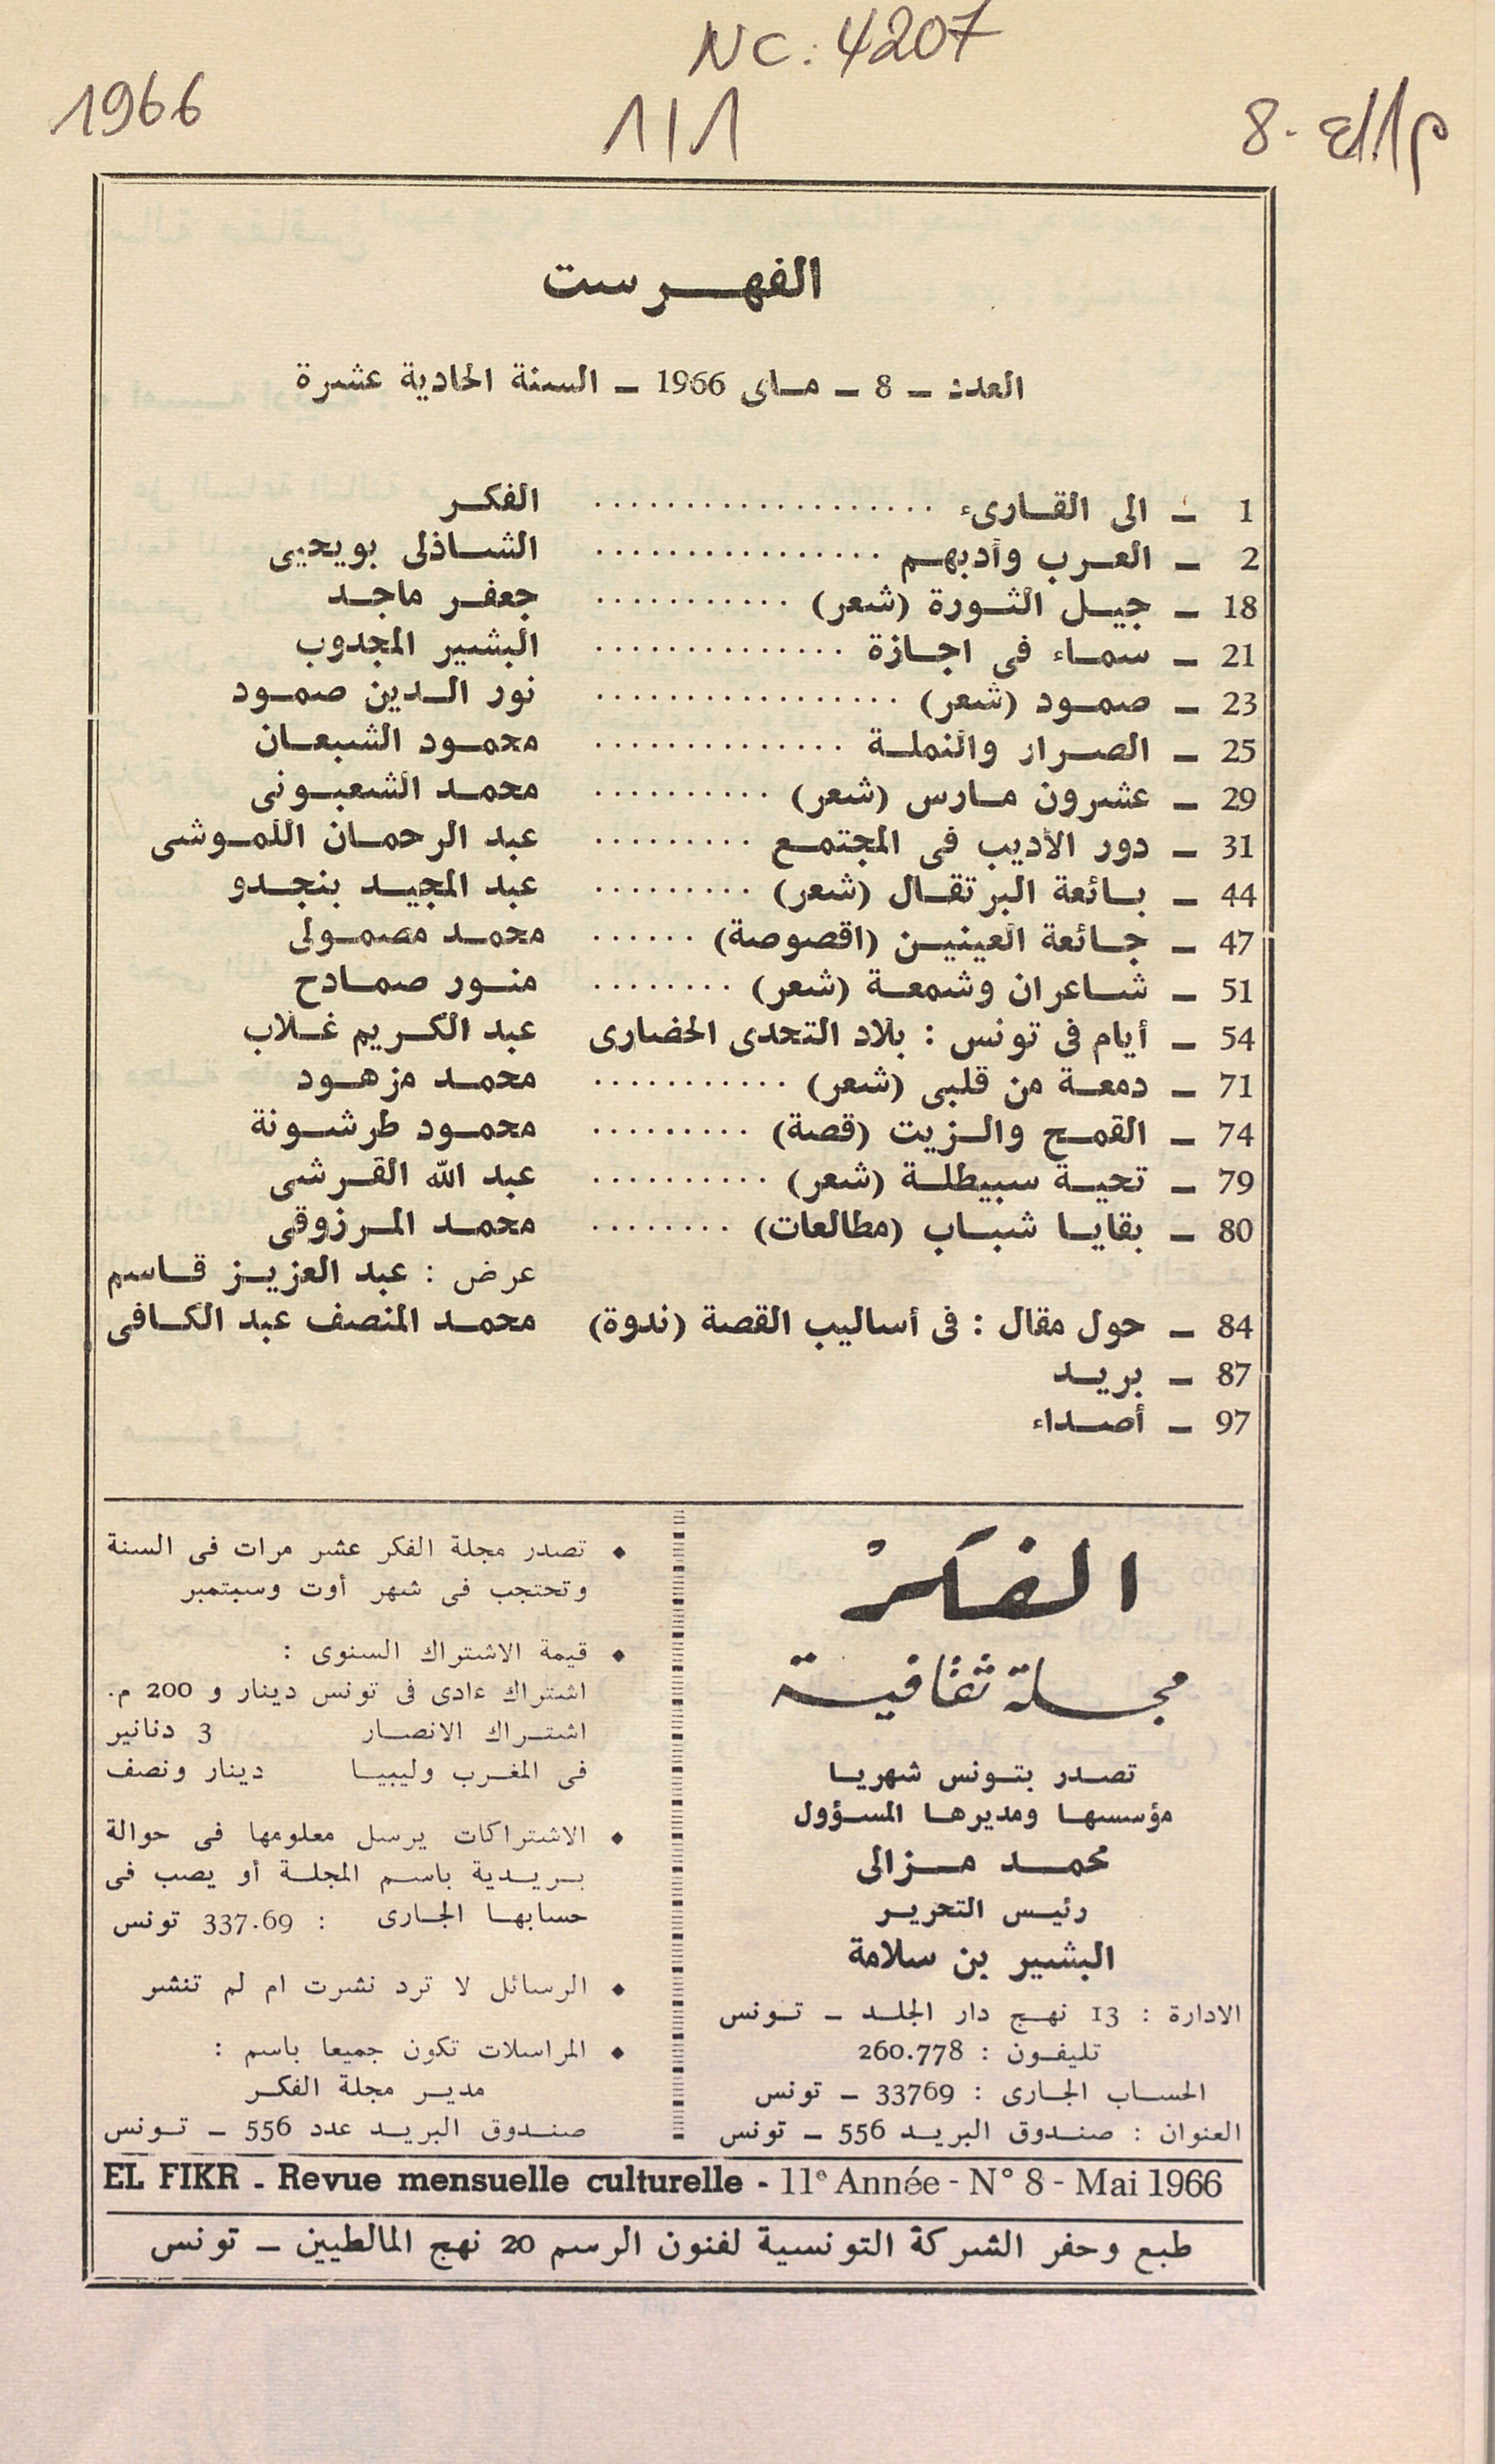 NC: 4207
1966
1/1
8-
الفهرست
العدد ـ 8 ـ ماى 1966 ـ السنة الحادية عشرة
1 ـ الى القارىء .................... الفكر
2 ـ العرب وأدبهم ................. الشاذلى بويحيى
18 ـ جيل الثورة (شعر) ............ جعفر ماجد
21 ـ سماء فى اجازة ............... البشير المجدوب
23 ـ صمود (شعر) .................. نور الدين صمود
25 ـ الصرار والنملة ............... محمود الشبعان
29 ـ عشرون مارس (شعر) ........... محمد الشعبونى
31 ـ دور الأديب فى المجتمع ......... عبد الرحمان اللموشى
44 ـ بائعة البرتقال (شعر) ......... عبد المجيد بنجدو
47 ـ جائعة العينين (اقصوصة) ...... محمد مصمولى
51 ـ شاعران وشمعة (شعر) ........ منور صمادح
54 ـ أيام فى تونس : بلاد التحدى الحضارى عبد الكريم غلاب
71 ـ دمعة من قلبى (شعر) ........... محمد مزهود
74 ـ القمح والزيت (قصة) ......... محمود طرشونة
79 ـ تحية سبيطلة (شعر) .......... عبد الله القرشى
80 ـ بقايا شباب (مطالعات) ........ محمد المرزوقى
عرض : عبد العزيز قاسم
84 ـ حول مقال : فى أساليب القصة (ندوة) محمد المنصف عبد الكافى
87 ـ بريد
97 ـ أصداء
الفكر
مجلة ثقافية
تصدر بتونس شهريا
مؤسسها ومديرها المسؤول
محمد مزالى
رئيس التحرير
البشير بن سلامة
الادارة : 13 نهج دار الجلد ـ تونس
تليفون : 260.778
الحساب الجارى : 33769 ـ تونس
العنوان : صندوق البريد 556 ـ تونس
♦ تصدر مجلة الفكر عشر مرات فى السنة
وتحتجب فى شهر أوت وسبتمبر
♦ قيمة الاشتراك السنوى :
اشتراك عادى فى تونس دينار و 200 م.
اشتراك الانصار 3 دنانير
فى المغرب وليبيا دينار ونصف
♦ الاشتراكات يرسل معلومها فى حوالة
بريدية باسم المجلة أو يصب فى
حسابها الجارى : 337.69 تونس
♦ الرسائل لا ترد نشرت ام لم تنشر
♦ المراسلات تكون جميعا باسم :
مدير مجلة الفكر
صندوق البريد عدد 556 ـ تونس
EL FIKR - Revue mensuelle culturelle - 11e Année - N° 8 - Mai 1966
طبع وحفر الشركة التونسية لفنون الرسم 20 نهج المالطيين ـ تونس